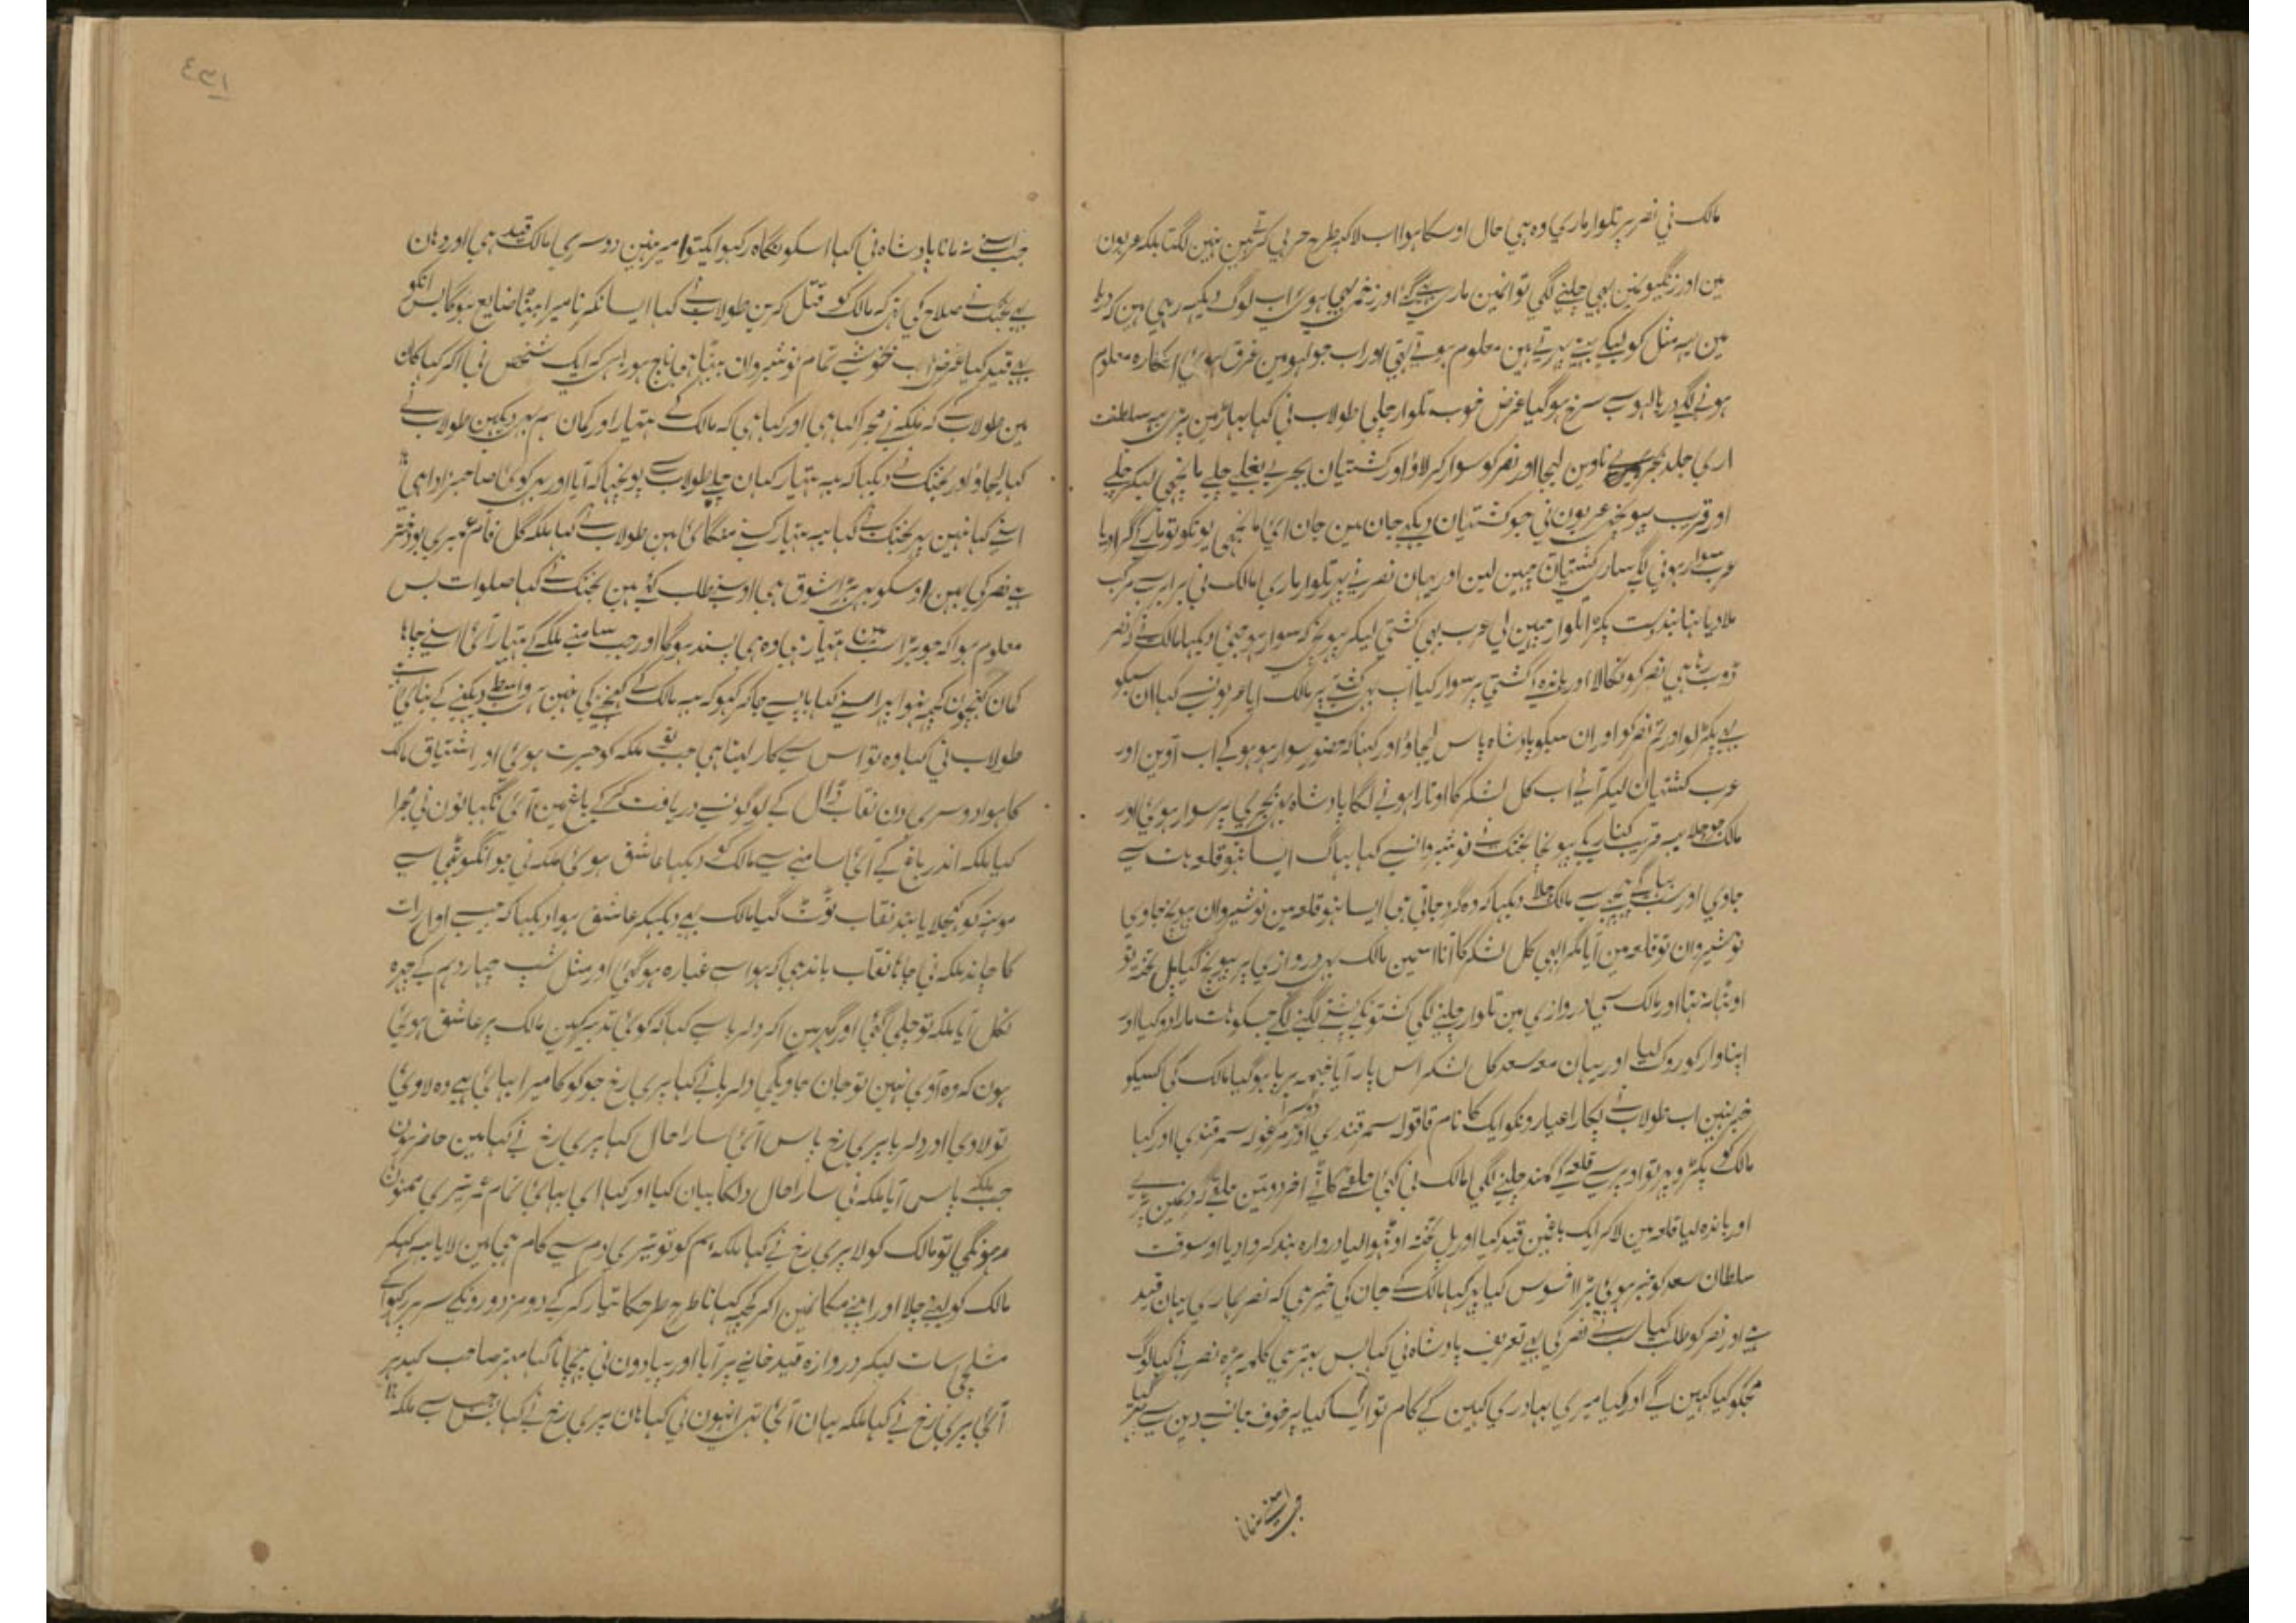 مالک نی نصر پر تلوار ماری وہ ہی حال اوسکا ہوا اب لاکہہ طرح حربی کرتے ہین نہین لگتا بلکہ عربون
مین اور زنگیونمین بہی چلنے لگی توانمین ماری گئے اور زخمی بہی ہوی اب لوگ دیکہہ رہی ہین کہ دریا
مین یہہ مثل کولیکے بہتے پہرتے ہین معلوم ہوتے تہی اور اب جو لہو مین غرق ہوئی انگارہ معلوم
ہونے لگے دریا لہو سے سرخ ہوگیا غرض خوب تلوار چلی طولاب نی کہا بہاڑ مین پڑی یہہ سلطنت
اری جلد ناوین لیجا اور نصر کو سوار کر لاؤ اور کشتیان بجری بغلے چلے مانجہی لیکر چلے
اور قریب پہونچی عربون نی جو کشتیان دیکہی جان مین جان آئی مانجہی یونکو تو مار کے گرا دیا
عرب سوار ہونی لگے ساری کشتیان چہین لین اور یہان نصر نے پہر تلوار ماری مالک نی برابر سے مرکب
ملا دیا بند دست پکڑا تلوار چہین لی عرب بہی کشتی لیکر پہونچے کہ سوار ہو جیئی دیکہا مالک نے نصر
ڈوبتا ہی نصر کو نکالا اور باندہ کشتی پر سوار کیا آپ بہی کشتی پر مالک آیا عربونسے کہا ان سبکو
بہی پکڑ لو اور تم نصر کو اور ان سبکو بادشاہ پاس لیجاؤ اور کہنا کہ حضور سوار ہو ہو کے اب آوین اور
عرب کشتیان لیکر آئے اب کل لشکر کا اوتارا ہونے لگا بادشاہ بہی بجری پر سوار ہوئی اور
مالک جو چلا یہہ قریب کناریکے پہونچا بختک نے نوشیروانسے کہا بہاگ ایسا نہو قلعہ ہات سے
جاوی اور سب بہاگے پیچہے سے مالک چلا دیکہا کہ وہ گرد جاتی ہی ایسا نہو قلعہ مین نوشیروان پہونچ جاوی
نوشیروان تو قلعہ مین آیا مگر ابہی کل لشکر کا آنا اسمین مالک بہی دروازی پر پہونچ گیا پل تختہ تو
اوٹہا نہ تہا اور مالک سی دروازی مین تلوار چلنے لگی کشتونکے پشتے لگنے لگے جسکو ہات مارا دو کیا اور
اپنا وار کو روک لیا اور یہان معہ سعد کل لشکر اس پار آیا خیمہ برپا ہوگیا مالک کی کسیکو
خبر نہین اب طولاب نے پکارا عیارونکو ایک کا نام قاقولہ سمرقندی دوسرا مرغولہ سمرقندی اور کہا
مالک کو پکڑو پہر تو اوپر سے قلعہ کے کمند چلنے لگی مالک نی کئی حلقے کاٹے آخر دو تین حلقے گردنمین پڑے
اور باندہ لیا قلعہ مین لاکر ایک باغمین قید کیا اور پل تختہ اوٹہوا لیا دروازہ بند کروا دیا اوسوقت
سلطان سعد کو خبر ہوئی بڑا افسوس کیا پہر کہا مالک کے جان کی خیر ہی کہ نصر ہماری یہان قید
ہے اور نصر کو طلب کیا سب نے نصر کی بہی تعریف بادشاہ نی کہا بس بہتر ہی کلمہ پڑہ نصر نے کہا لوگ
مجکو کیا کہین گے اور کیا میری بہادری کہین گے کام تو ایسا کیا پر خوف جانسے دین سے پہر گیا
جب اسنے
۱۳۶
جب اسنے نہ مانا بادشاہ نی کہا اسکو نگاہ رکہو ایکتو امیر نہین دوسری مالک قید ہی اور وہان
یہہ بختک نے صلاح کی تہی کہ مالک کو قتل کرین طولاب نے کہا ایسا نکرنا میرا بیٹا ضایع ہوگا پس انکو
بہی قید کیا غرض اب خوشی تمام نوشیروان بیٹہا ہی ناچ ہو رہا ہی کہ ایک شخص نی آکر کہا کان
مین طولاب کے کہ ملکہ نے مجرا کہا ہی اور کہا ہی کہ مالک کے ہتہیار اور کمان ہم بہی دیکہین طولاب نے
کہا لیجاؤ اور بختک نے دیکہا کہ یہہ ہتہیار کہان چلے طولاب سے پونچہا کہ آیا اور بہی کوئی صاحبزادا ہی
اسنے کہا نہین پہر بختک نے کہا یہہ ہتہیار کسنے منگائی ہین طولاب نے کہا ملکہ گل فام عمیری جو دختر
ہے نصر کی بہن اوسکو بہی بڑا شوق ہی اوسنے طلب کئے ہین بختک نے کہا صلوات بس
معلوم ہوا کہ جو بڑا سب مین ہتہیار تہا وہ ہی پسند ہوگا اور جب سامنے ملکہ کے ہتہیار آئی اسنے چاہا
کمان کہینچون کچہہ نہوا پہر اسنے کہا باپ سے جاکر کہو کہ یہہ مالک کے کہینچنے کی نہین ہے واسطے دیکہنے کے بنائی ہے
طولاب نی کہا وہ تو اس سے کار لیتا ہی جب تو ملکہ کو حیرت ہوئی اور اشتیاق مالک
کا ہوا دوسری دن نقاب ڈال کے لوگونسے دریافت کرکے باغ مین آئی نگہبانون نی مجرا
کیا ملکہ اندر باغ کے آئی سامنے سے مالک کو دیکہا عاشق ہوئی ملکہ نی جو انگوٹہی سے
مونہہ کو کہجلایا بند نقاب ٹوٹ گیا مالک بہی دیکہکر عاشق ہوا دیکہا کہ جیسے اول رات
کا چاند ملکہ نی چاہا نقاب باندہی کہ ہوا سے غبارہ ہوگئی اور مثل شب چہاردہم کے چہرہ
نکل آیا ملکہ تو چلی گئی اور گہر مین آکر دلربا سے کہا کہ کوئی تدبیر کہین مالک پر عاشق ہوئی
ہون کہ وہ آوی نہین تو جان جاویگی دلربا نے کہا پری رخ جو کوکا میرا بہائی ہے وہ لاوی
تو لاوی اور دلربا پری رخ پاس آئی سارا حال کہا پری رخ نے کہا مین حاضر ہون
جب ملکہ پاس آیا ملکہ نی سارا حال دلکا بیان کیا اور کہا ای بہائی تمام عمر تیری ممنون
مرہونگی تو مالک کو لا پری رخ نے کہا ملکہ ہم کو تو تیری دم سے کام ہی مین لایا یہہ کہکر
مالک کو لینے چلا اور اپنے مکانمین آکر کچہہ کہانا طرح طرحکا تیار کرکے دو مزدورونکے سر پر رکہوا کے
مشعلچی سات لیکر دروازہ قید خانے پر آیا اور پیادون نی پہچانا کہا مہتر صاحب کیدہر
آئی پری رخ نے کہا ملکہ یہان آئی تہی انہون نی کہا ہان پری رخ نے کہا جس سے ملکہ